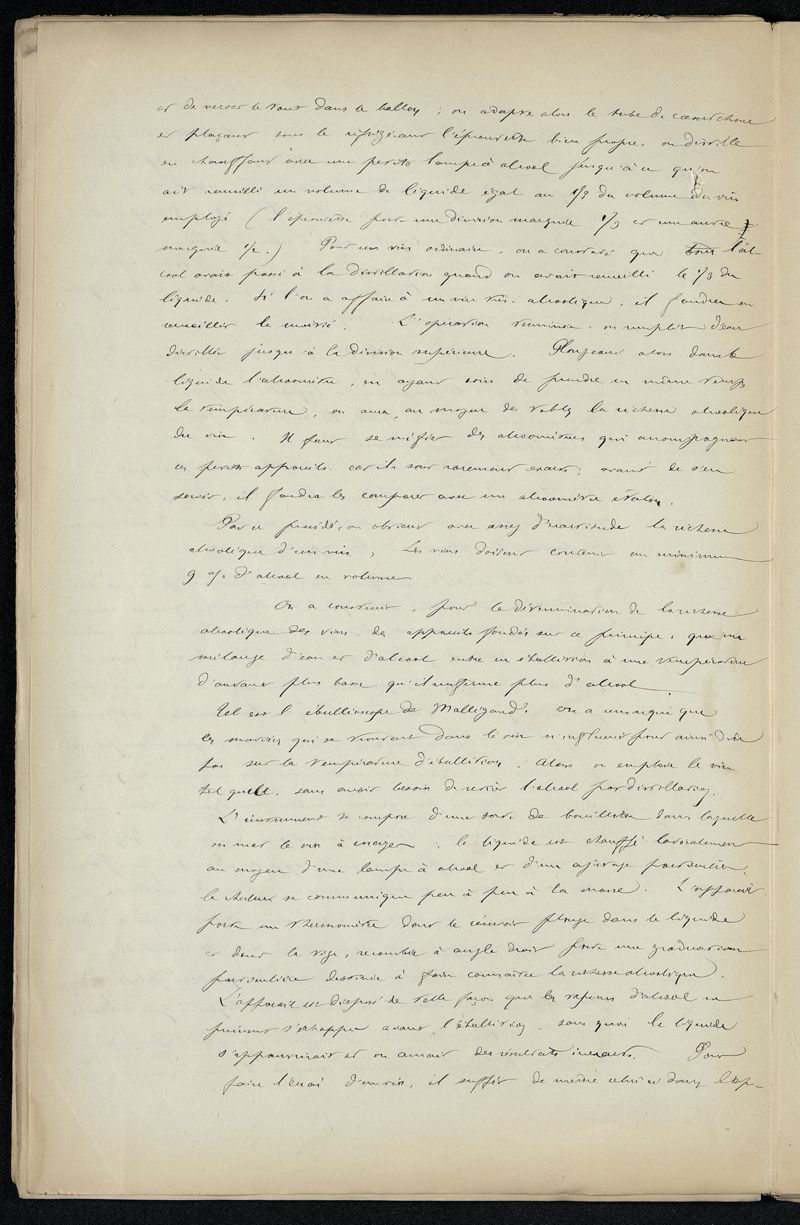 et de verser le tout dans le ballon ; on adapte alors le tube de caoutchouc
et plaçant sous le réfrigérant l'éprouvette bien propre, on distille
en chauffant avec une petite lampe à alcool jusqu'à ce qu'on
ait recueilli un volume de liquide égal au 1/3 du volume du vin
employé (l'éprouvette porte une division marquée 1/3 et une autre
marquée 1/2.) Pour un vin ordinaire, on a constaté que tout l'al
cool avait passé à la distillation quand on avait recueilli le 1/3 du
liquide. Si l'on a affaire à un vin très-alcoolique, il faudra en
recueillir la moitié. L'opération terminée, on remplit d'eau
distillée jusqu'à la division supérieure. Plongeant alors dans le
liquide l'alcoomètre, en ayant soin de prendre en même temps
la température, on aura, au moyen des tables la richesse alcoolique
du vin. Il faut se méfier des alcoomètres qui accompagnent
ces petits appareils, car ils sont rarement exacts ; avant de s'en
servir, il faudra les comparer avec un alcoomètre étalon.
Par ce procédé, on obtient avec assez d'exactitude la richesse
alcoolique d'un vin. Les vins doivent contenir au minimum
9 % d'alcool en volume
On a construit, pour la détermination de la richesse
alcoolique des vins, des appareils fondés sur ce principe, que un
mélange d'eau et d'alcool entre en ébullition à une température
d'autant plus basse qu'il renferme plus d'alcool
Tel est l'ébullioscope de Malligand. On a remarqué que
les matières qui se trouvent dans le vin n'influent pour ainsi dire
pas sur la température d'ébullition. Alors on emploie le vin
tel quel, sans avoir besoin de retirer l'alcool par distillation.
L'instrument se compose d'une sorte de bouillotte dans laquelle
on met le vin à essayer, le liquide est chauffé latéralement
au moyen d'une lampe à alcool et d'un ajutage particulier,
la chaleur se communique peu à peu à la masse. L'appareil
porte un thermomètre dont le réservoir plonge dans le liquide
et dont la tige, recourbée à angle droit porte une graduation
particulière destinée à faire connaître la richesse alcoolique.
L'appareil est disposé de telle façon que les vapeurs d'alcool ne
puissent s'échapper avant l'ébullition, sans quoi le liquide
s'appauvrirait et on aurait des résultats inexacts. Pour
faire l'essai d'un vin, il suffit de mettre celui-ci dans l'ap-